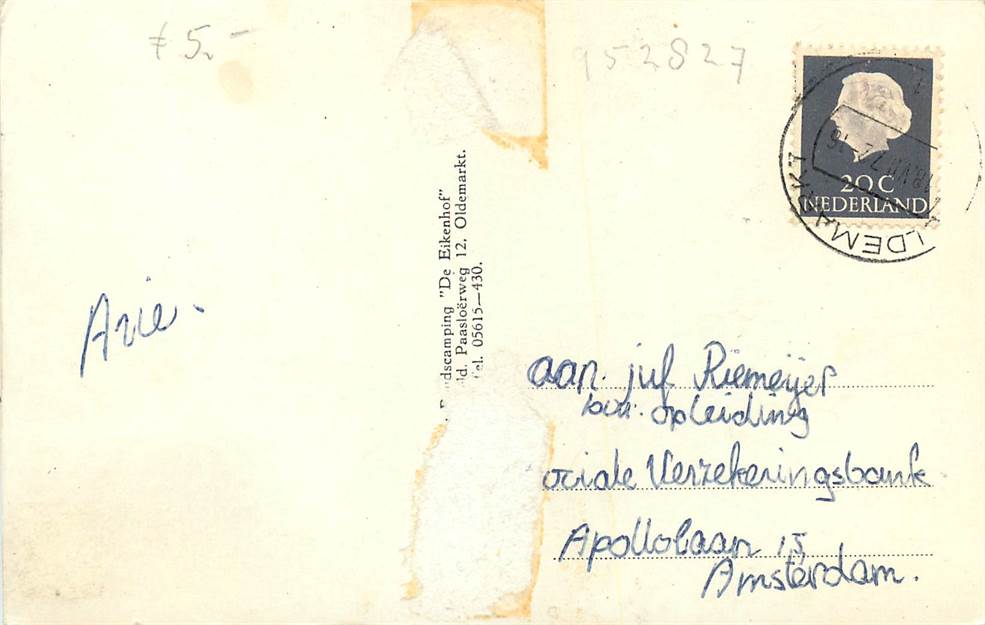 € 5,-
952827
20 C
NEDERLAND
OLDEMARKT
Arie.
dscamping "De Eikenhof"
ld. Paasloërweg 12, Oldemarkt.
el. 05615—430.
aan. juf Riemeijer
opleiding
ociale Verzekeringsbank
Apollolaan 15
Amsterdam.